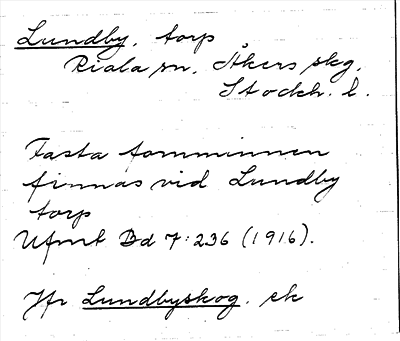 Lundby, torp
Riala sn. Åkers skg.
Stockh. l.
Fasta fornminnen
finnas vid Lundby
torp
Ufmt Bd 7:236 (1916).
Jfr Lundbyskog. ek